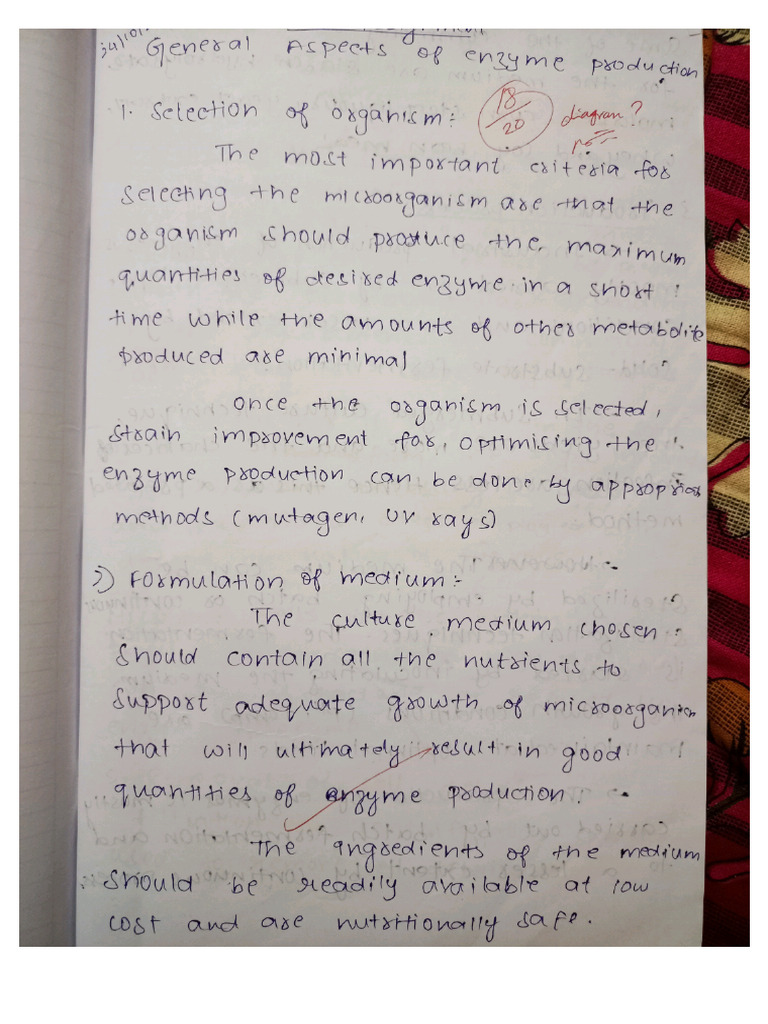 General Aspects of enzyme production
1. Selection of organism:-
18/20 diagram?
The most important criteria for
selecting the microorganism are that the
organism should produce the maximum
quantities of desired enzyme in a short
time while the amounts of other metabolite
produced are minimal
Once the organism is selected,
strain improvement for optimising the
enzyme production can be done by appropriate
methods (mutagen, UV rays)
2) Formulation of medium:-
The culture medium chosen
should contain all the nutrients to
support adequate growth of microorganism
that will ultimately result in good
quantities of enzyme production.
The ingredients of the medium
should be readily available at low
cost and are nutritionally safe.